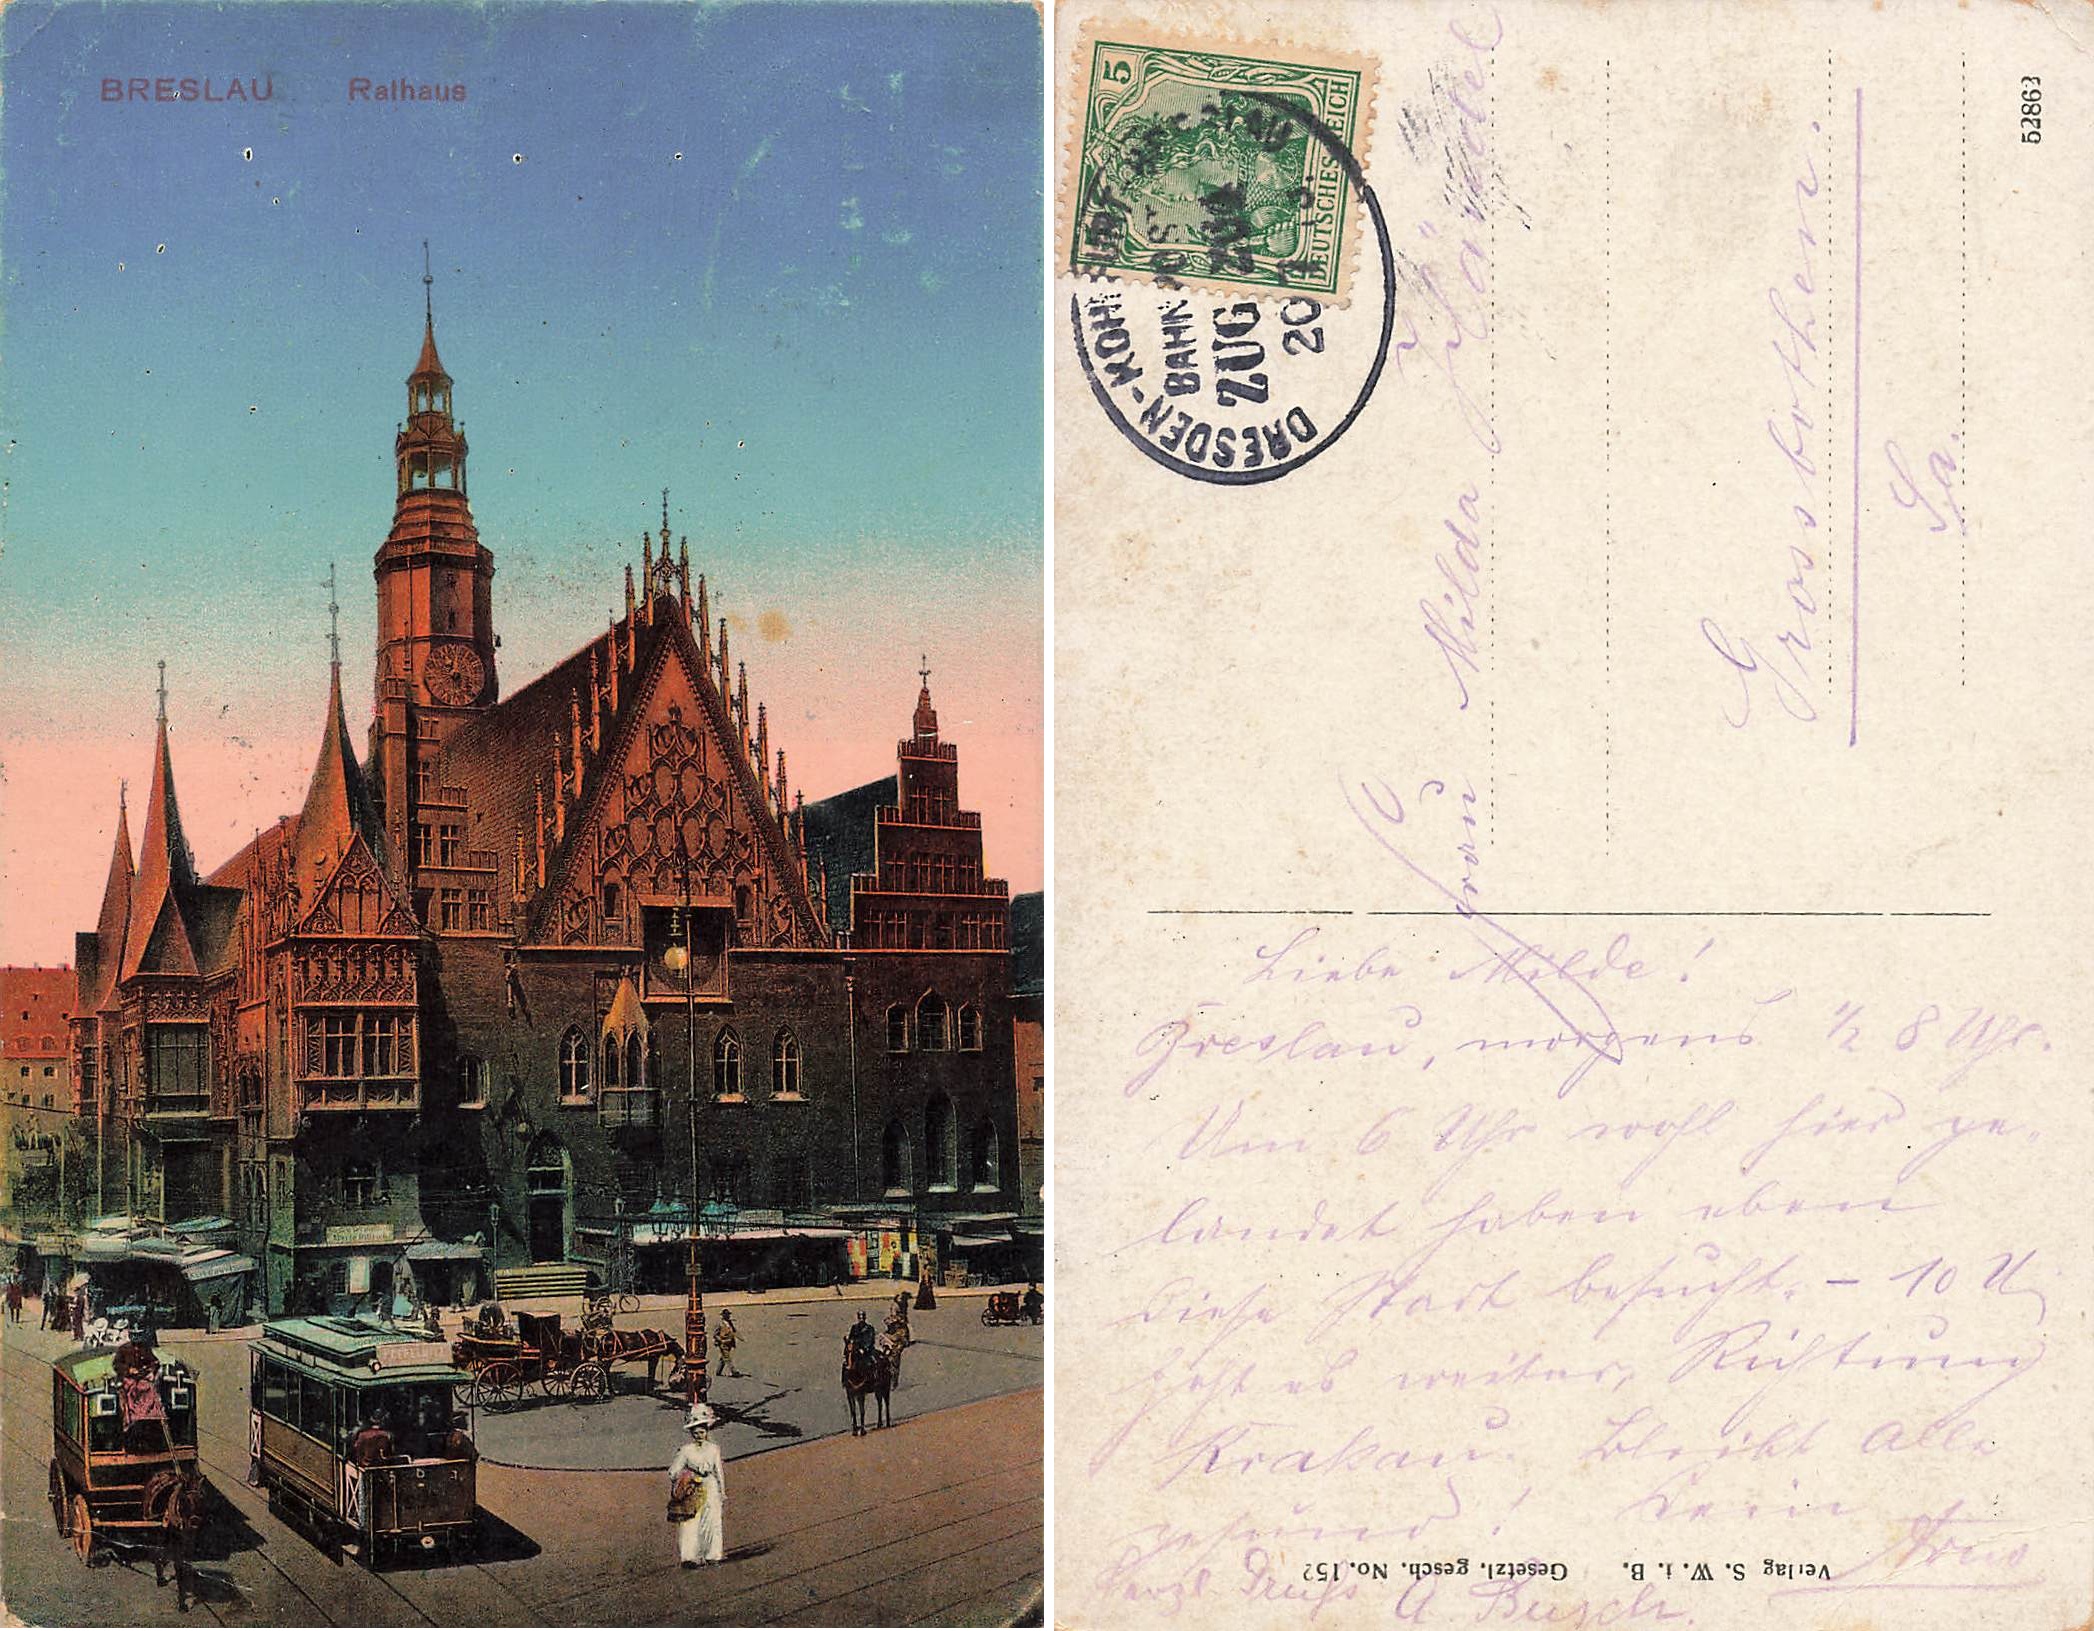 BRESLAU Rathaus
5
DEUTSCHES REICH
DRESDEN-KOHLFURT-BRESLAU
BAHNPOST
ZUG
20
52863
Frau Milda Händel
Grossbothen.
Sa.
Liebe Milde!
Breslau, morgens 1/2 8 Uhr.
Um 6 Uhr wohl hier ge-
landet haben eben
diese Stadt besucht. – 10 U
geht es weiter, Richtung
Krakau. Bleibt alle
gesund! Dein
Arno
Herzl. Gruß A. Busch.
Verlag S. W. i. B. Gesetzl. gesch. No. 152